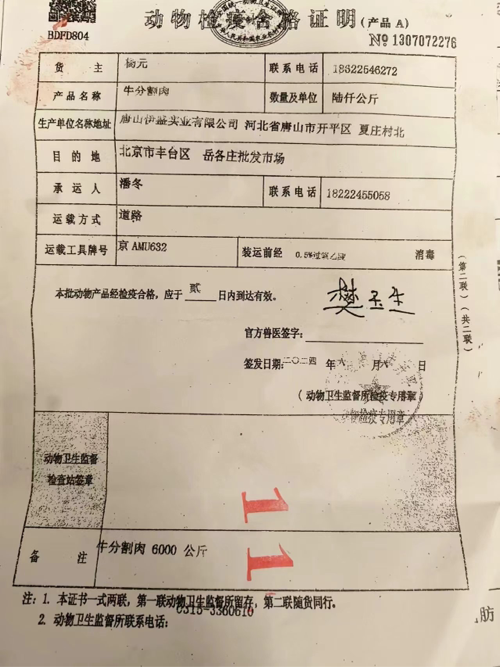 动物检疫合格证明(产品 A)
BDFD804
№ 1307072276
货 主 杨元 联系电话 18622546272
产品名称 牛分割肉 数量及单位 陆仟公斤
生产单位名称地址 唐山伊盛实业有限公司 河北省唐山市开平区 夏庄村北
目 的 地 北京市丰台区 岳各庄批发市场
承 运 人 潘冬 联系电话 18222455058
运载方式 道路
运载工具牌号 京 AMU632 装运前经 0.5%过氧乙酸 消毒
(第二联)(共二联)
本批动物产品经检疫合格，应于 贰 日内到达有效。
樊玉生
官方兽医签字：
签发日期：二〇二四 年 六 月 六 日
(动物卫生监督所检疫专用章)
检疫专用章
动物卫生监督
检查站签章
11
备 注 牛分割肉 6000 公斤
注：1. 本证书一式两联，第一联动物卫生监督所留存，第二联随货同行。
2. 动物卫生监督所联系电话： 0315-3360610